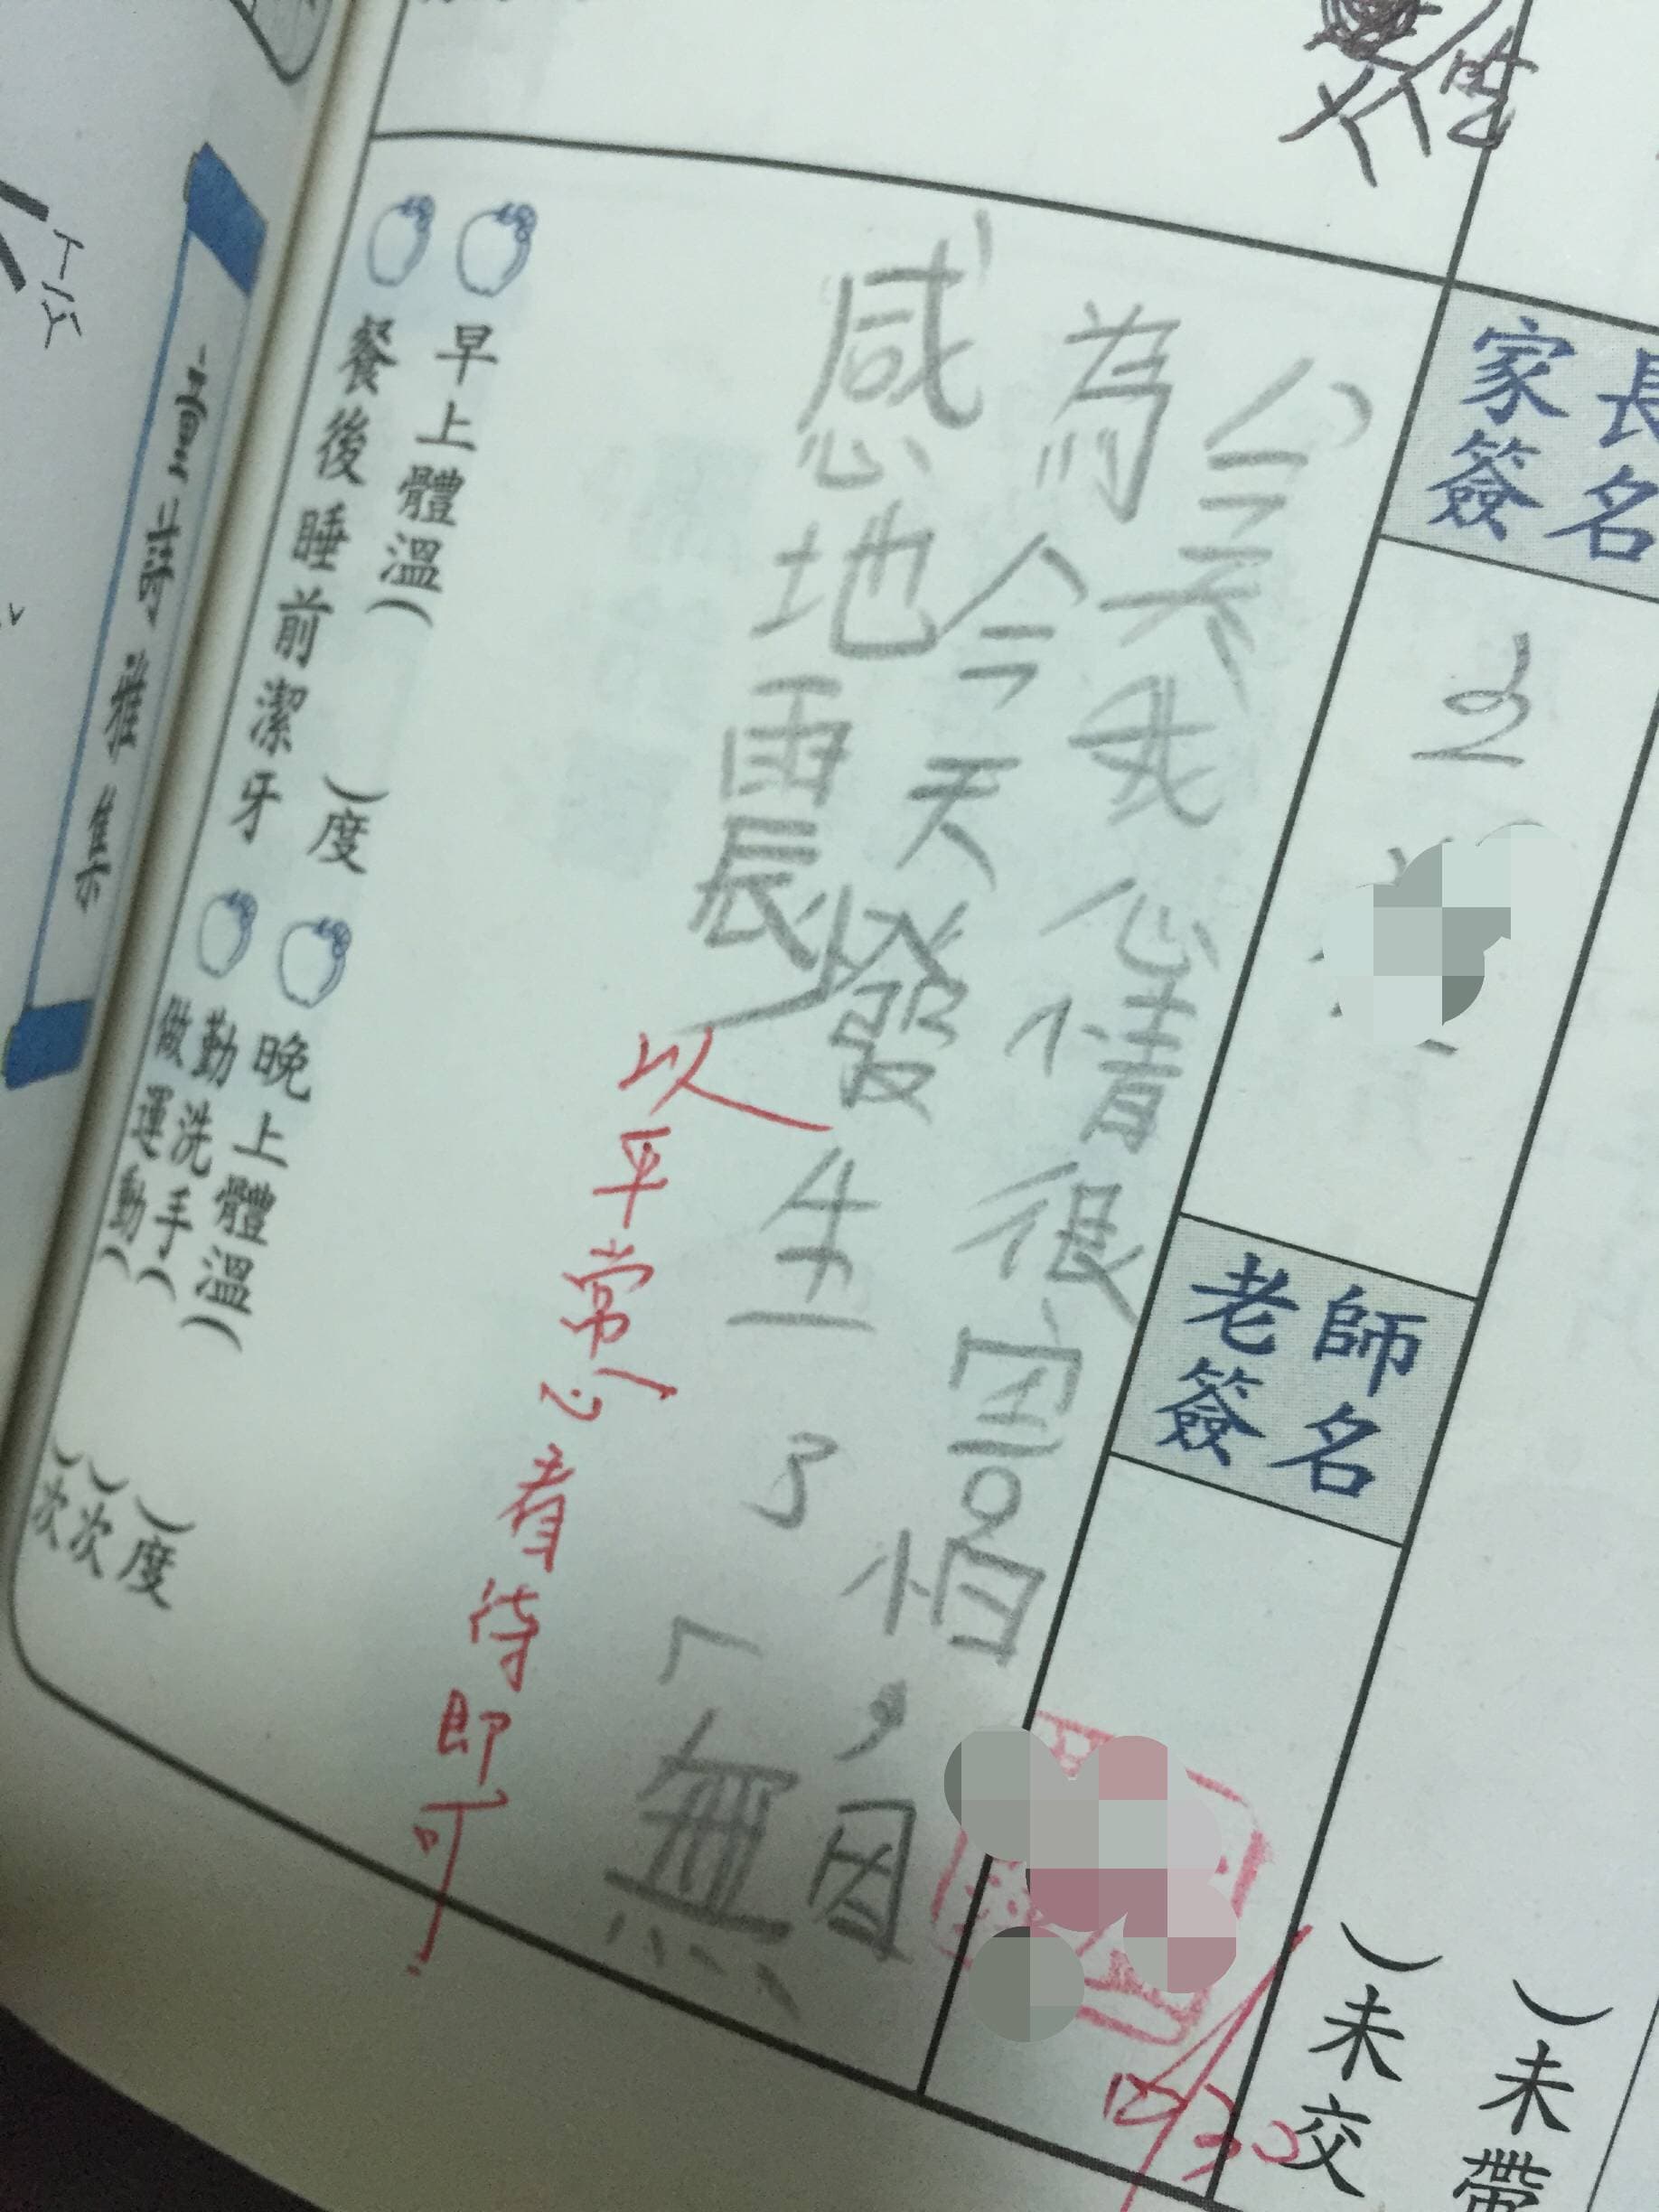 )未帶
)未交
家長簽名
老師簽名
今天我心情很害怕，因
為今天發生了「無
感地震」
以平常心看待即可
早上體溫( )度 晚上體溫( )度
餐後睡前潔牙 勤洗手( )次
做運動( )次